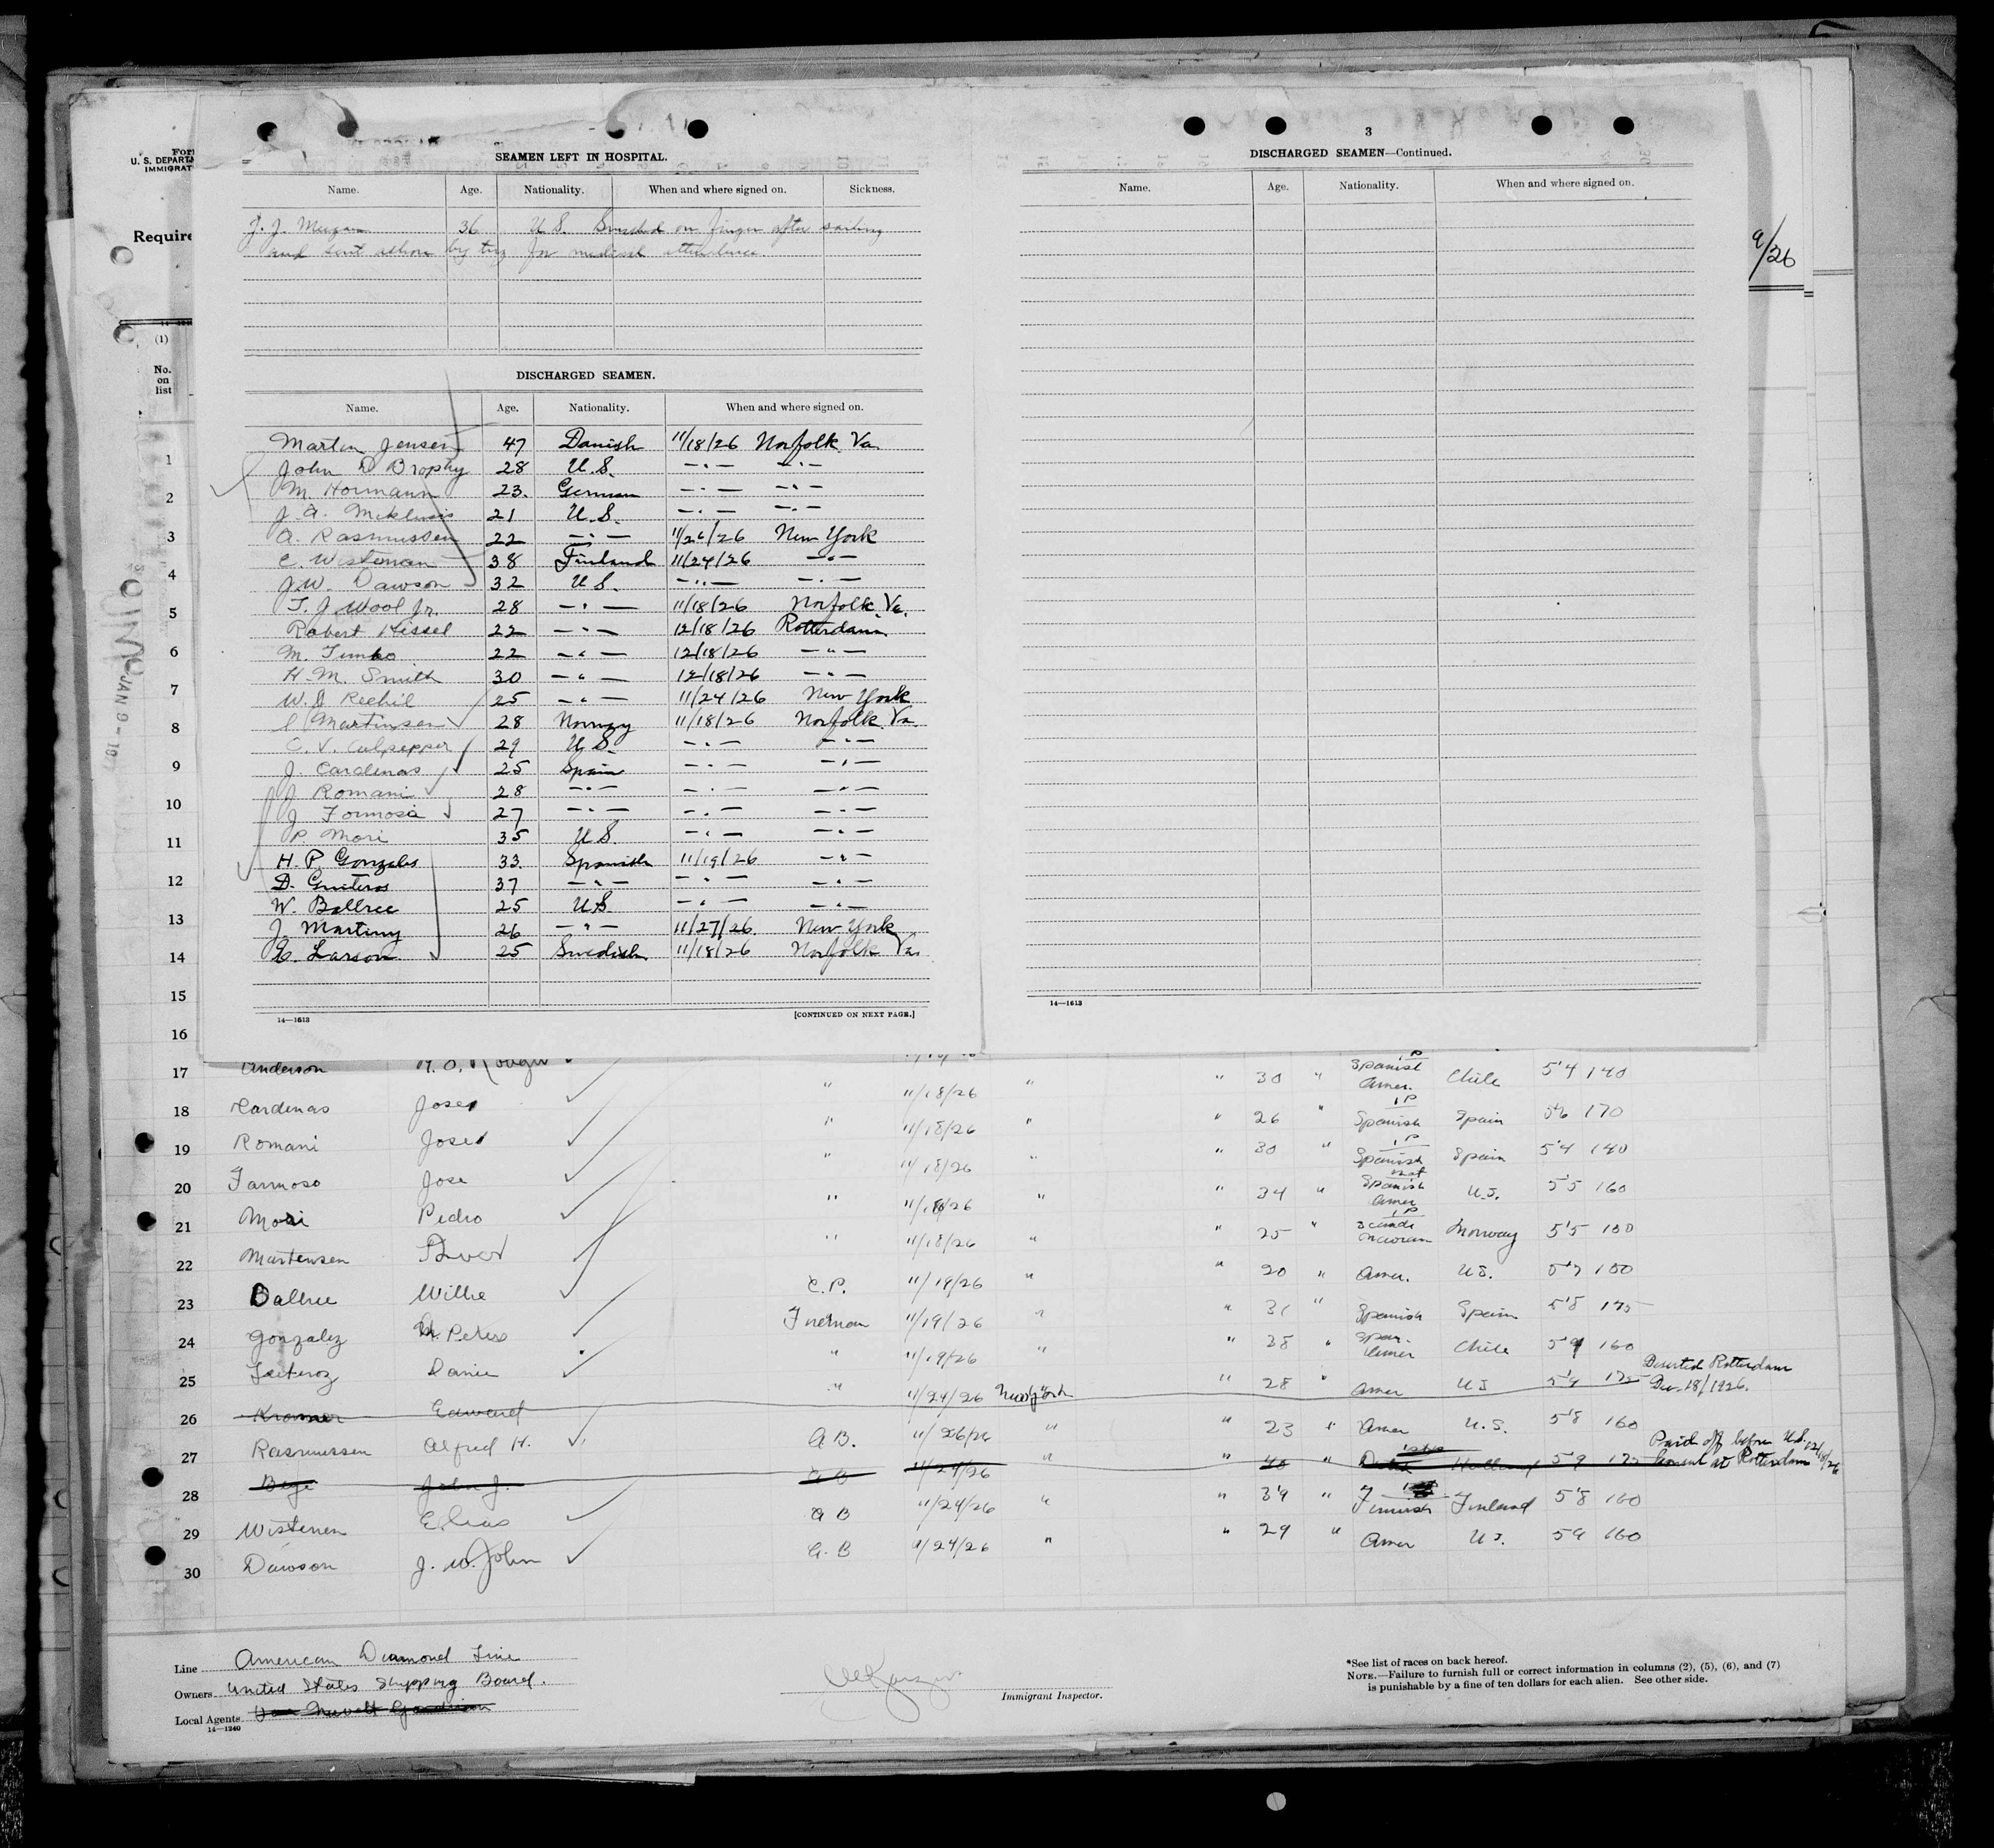 For
U. S. DEPART
IMMIGRAT
Require
(1)
No.
on
list
9/26
SEAMEN LEFT IN HOSPITAL.
Name. Age. Nationality. When and where signed on. Sickness.
36 U S. on finger after sailing
and sent ashore by tug for medical attendance.
DISCHARGED SEAMEN.
Name. Age. Nationality. When and where signed on.
Martin Jensen 47 Danish 11/18/26 Norfolk Va
John D Brophy 28 U.S. —"— —"—
M. Hormann 23. German —"— —"—
J. A. 21 U.S. —"— —"—
A. Rasmussen 22 —"— 11/26/26 New York
E. Wisteman 38 Finland 11/24/26 —"—
J.W. Dawson 32 U S. —"— —"—
T. J Wool Jr. 28 —"— 11/18/26 Norfolk Va.
Robert Hissel 22 —"— 12/18/26 Rotterdam
M. Timko 22 —"— 12/18/26 —"—
H. M. Smith 30 —"— 12/18/26 —"—
W. J 25 —"— 11/24/26 New York
Martinsen 28 Norway 11/18/26 Norfolk Va
C. V. Culpepper 29 U S. —"— —"—
J. Cardenas 25 Spain —"— —"—
J Romani 28 —"— —"— —"—
J Formosa 27 —"— —"— —"—
P Mori 35 U S. —"— —"—
H. P. Gonzales 33. Spanish 11/19/26 —"—
D. Guiteros 37 —"— —"— —"—
W. Ballree 25 US —"— —"—
J. Martiny 26 —"— 11/27/26. New York
E. Larson 25 Swedish 11/18/26 Norfolk Va
14—1613 [CONTINUED ON NEXT PAGE.]
3
DISCHARGED SEAMEN—Continued.
Name. Age. Nationality. When and where signed on.
14—1613
1
2
3
4
5
6
7
8
9
10
11
12
13
14
15
16
JAN 9 - 19
17 Anderson
18 Kardenas Jose " 11/18/26 " " 30 " Spanish Amer. Chile 5'4 140
19 Romani Jose " 11/18/26 " " 26 " Spanish Spain 5'6 170
20 Farmoso Jose " 11/18/26 " " 30 " Spanish Spain 5'4 140
21 Mori Pedro " 11/18/26 " " 34 " Spanish Amer U.S. 5'5 160
22 Martensen " 11/18/26 " " 25 " Norway 5'5
23 Ballree Willie C.P. 11/19/26 " " 20 " Amer. U.S. 5'7
24 Gonzalez H. Peters Fireman 11/19/26 " " 31 " Spanish Spain 5'8 175
25 " 11/19/26 " " 38 " Span. Amer Chile 5'9 160
26 Kramer Edward " 11/24/26 New York " 28 " Amer U.S 5'9 Deserted Rotterdam
Dec. 18/1926.
27 Rasmussen Alfred H. A B. 11/26/26 " " 23 " Amer U.S. 5'8 160
28 John J. A B 11/24/26 " " 40 " Dutch Holland 5'9 Paid off before U.S. 12/18/26
Consul at Rotterdam
29 Wistenen Elias A B 11/24/26 " " 39 " Finnish Finland 5'8 160
30 Dawson J. W. John A. B 11/24/26 " " 29 " Amer U.S. 5'9 160
Line American Diamond Line
Owners United States Shipping Board.
Local Agents
14—1240
Immigrant Inspector.
*See list of races on back hereof.
NOTE.—Failure to furnish full or correct information in columns (2), (5), (6), and (7)
is punishable by a fine of ten dollars for each alien. See other side.